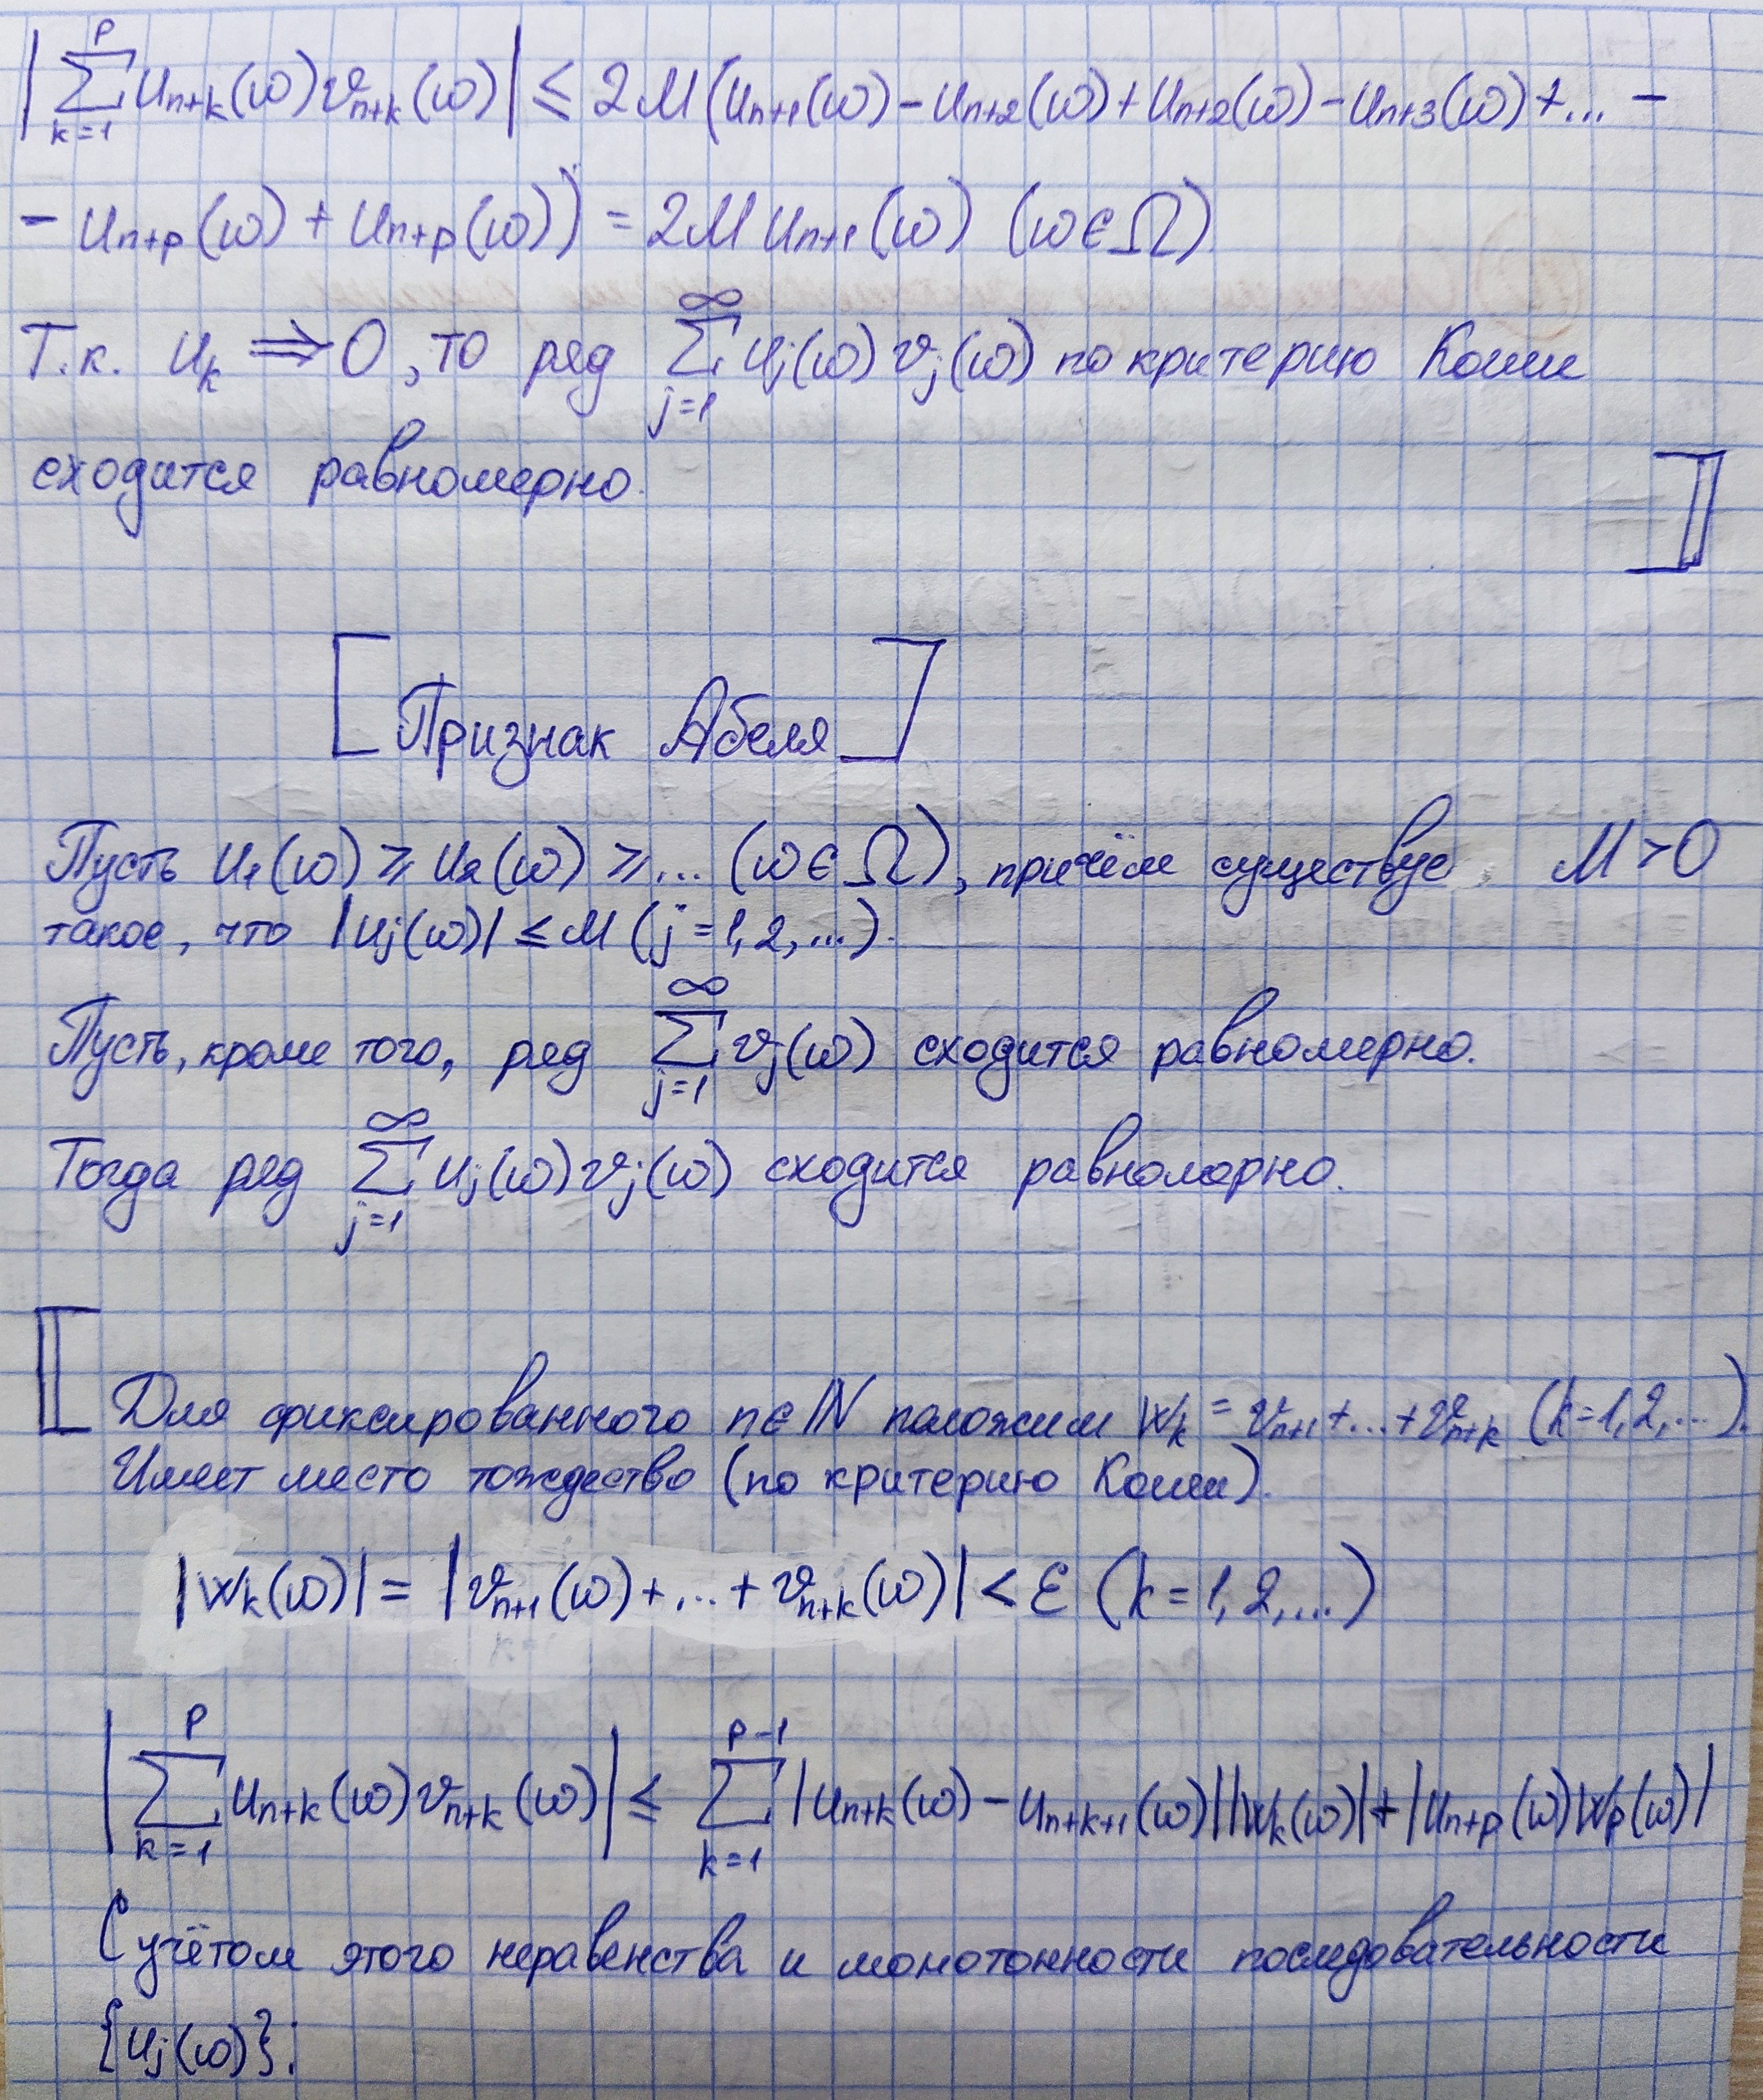 |∑_{k=1}^{p} u_{n+k}(ω)v_{n+k}(ω)| ≤ 2M(u_{n+1}(ω) − u_{n+2}(ω) + u_{n+2}(ω) − u_{n+3}(ω) + ... −
− u_{n+p}(ω) + u_{n+p}(ω)) = 2M u_{n+1}(ω) (ω ∈ Ω)
Т.к. u_k ⇒ 0, то ряд ∑_{j=1}^{∞} u_j(ω)v_j(ω) по критерию Коши
сходится равномерно.
[Признак Абеля]
Пусть u_1(ω) ≥ u_2(ω) ≥ ... (ω ∈ Ω), причём существуе M > 0
такое, что |u_j(ω)| ≤ M (j = 1, 2, ...).
Пусть, кроме того, ряд ∑_{j=1}^{∞} v_j(ω) сходится равномерно.
Тогда ряд ∑_{j=1}^{∞} u_j(ω)v_j(ω) сходится равномерно.
Для фиксированного n ∈ ℕ положим W_k = v_{n+1} + ... + v_{n+k} (k = 1, 2, ...).
Имеет место тождество (по критерию Коши).
|W_k(ω)| = |v_{n+1}(ω) + ... + v_{n+k}(ω)| < ε (k = 1, 2, ...)
|∑_{k=1}^{p} u_{n+k}(ω)v_{n+k}(ω)| ≤ ∑_{k=1}^{p−1} |u_{n+k}(ω) − u_{n+k+1}(ω)||W_k(ω)| + |u_{n+p}(ω)W_p(ω)|
С учётом этого неравенства и монотонности последовательности
{u_j(ω)}: